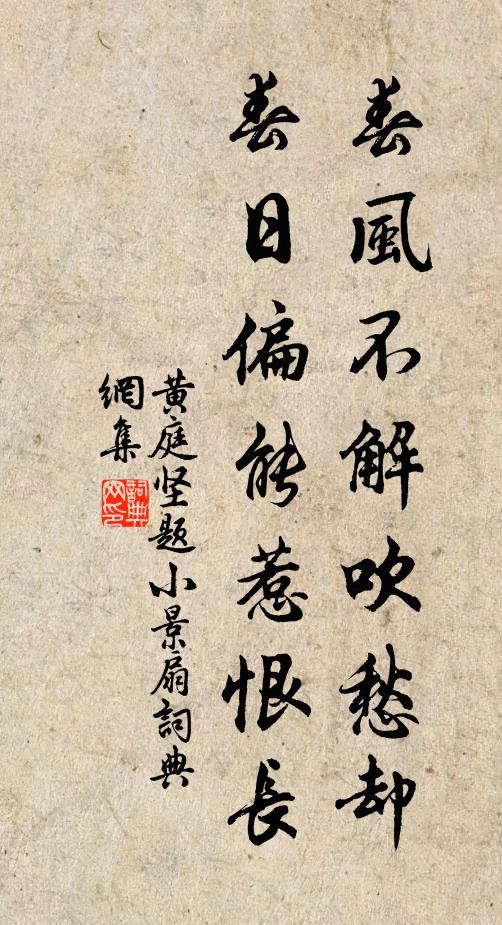 春風不解吹愁却
春日偏能惹恨長
黄庭坚题小景扇詞典
網集
詞典
网印